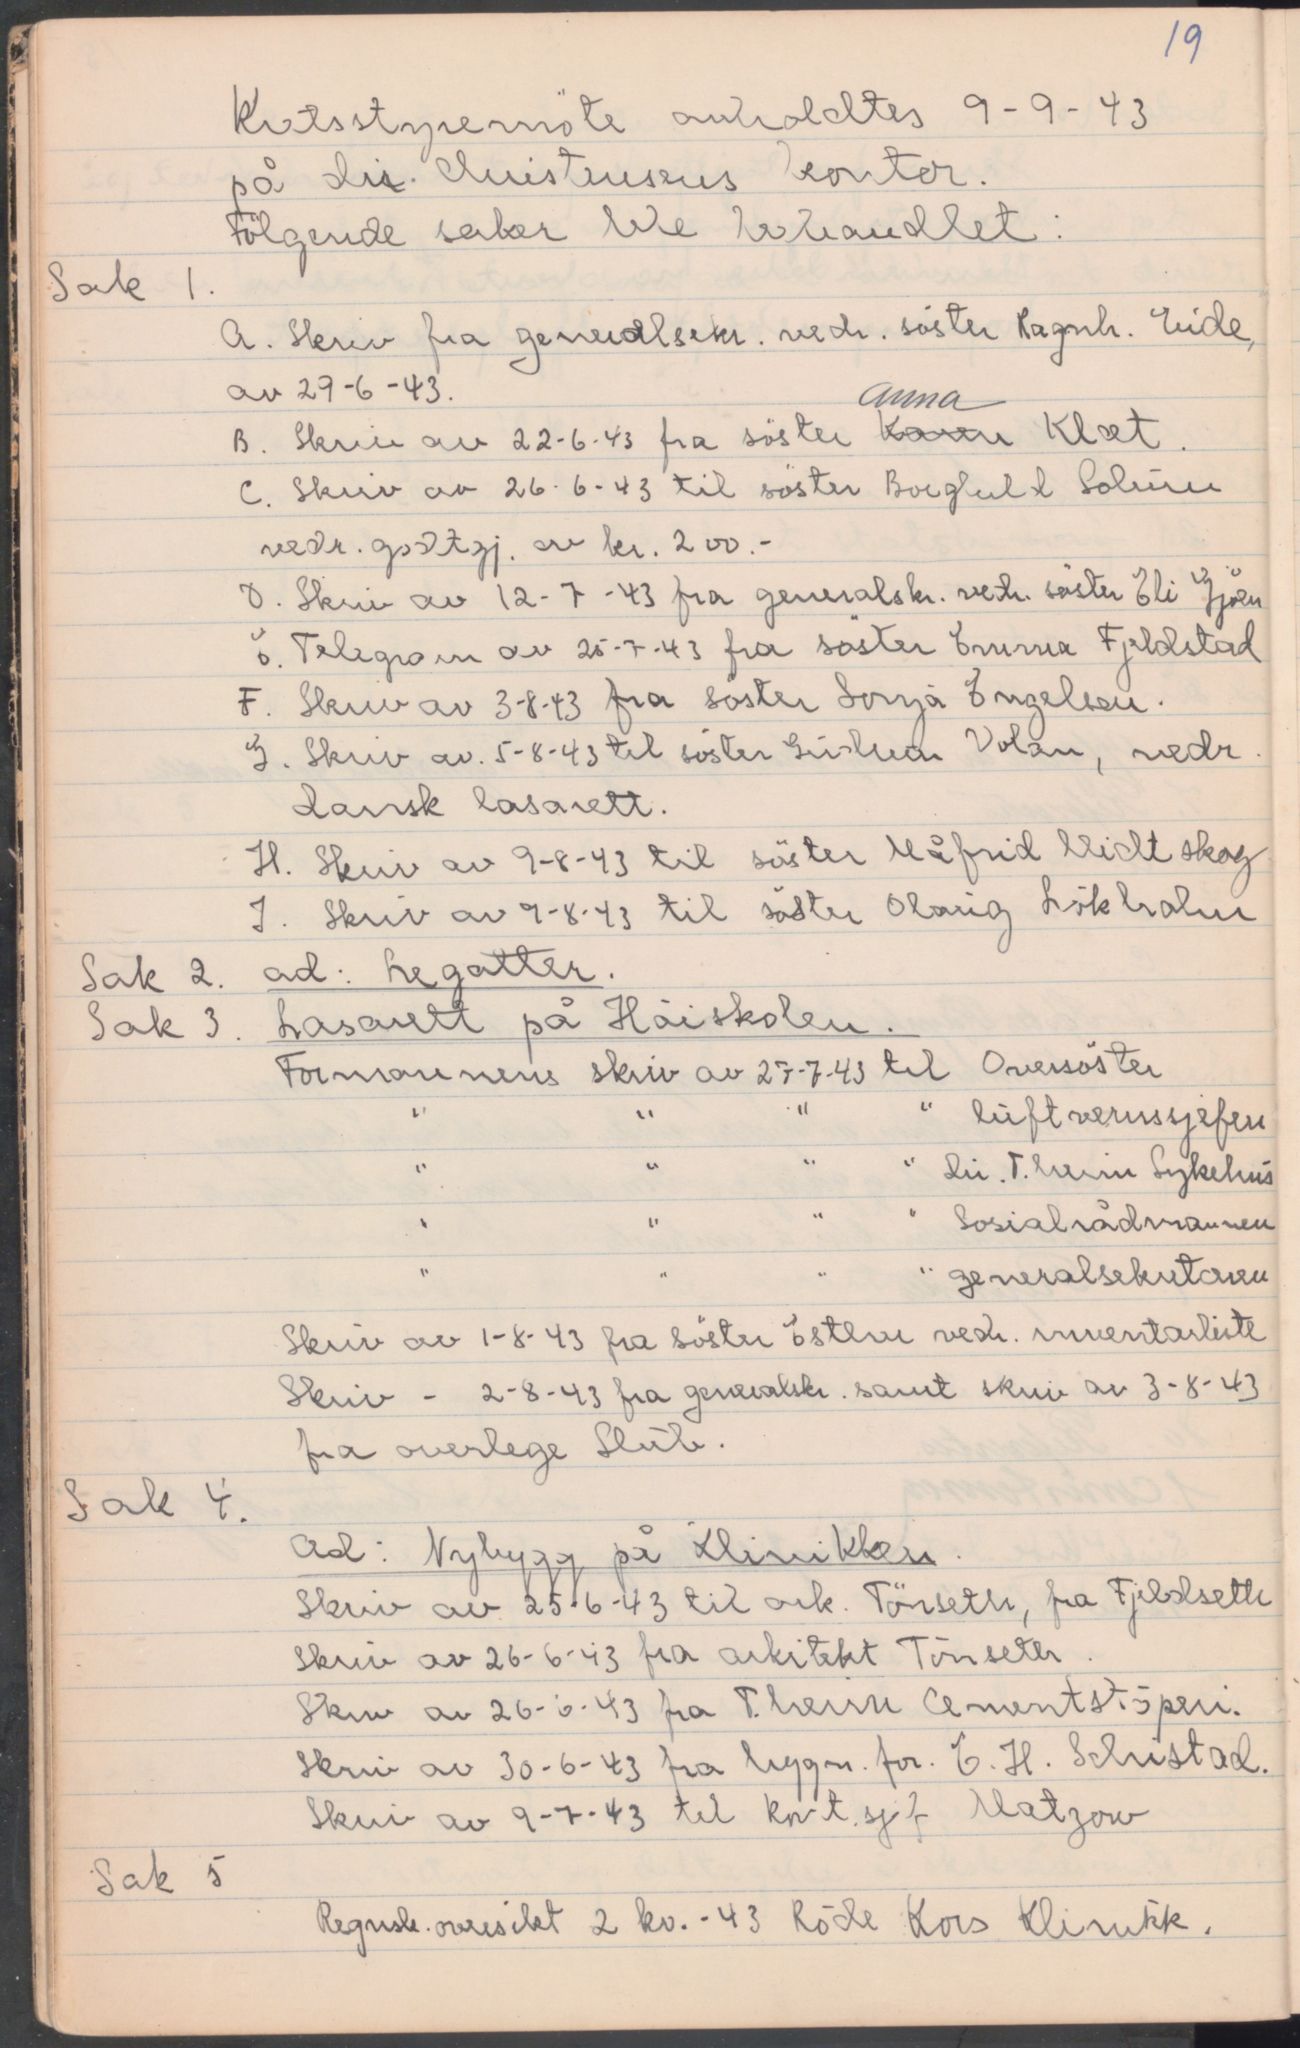 19
Kretsstyremöte avholdtes 9-9-43
på dir. Christensens kontor.
Fölgende saker ble behandlet:
Sak 1.
A. Skriv fra generalsekr. vedr. söster Ragnh. Eide,
av 29-6-43.
Anna
B. Skriv av 22-6-43 fra söster Karen Klæt.
C. Skriv av 26-6-43 til söster Borghild Solum
vedr. godtgj. av kr. 200.-
D. Skriv av 12-7-43 fra generalskr. vedr. söster Eli Gjöen
E. Telegram av 25-7-43 fra söster Emma Fjeldstad
F. Skriv av 3-8-43 fra söster Sonja Engelsen.
G. Skriv av. 5-8-43 til söster Gudrun Volan, vedr.
dansk lasarett.
H. Skriv av 9-8-43 til söster Målfrid Midtskog
J. Skriv av 9-8-43 til söster Olaug Lökholm
Sak 2. ad: Legatter.
Sak 3. Lasarett på Höiskolen.
Formannens skriv av 27-7-43 til Oversöster
" " " " luftvernssjefen
" " " " dir. T.heim Sykehus
" " " " Sosialrådmannen
" " " " generalsekretæren
Skriv av 1-8-43 fra söster Esther vedr. inventarliste
Skriv - 2-8-43 fra generalskr. samt skriv av 3-8-43
fra overlege Stub.
Sak 4.
Ad: Nybygg på Klinikken.
Skriv av 25-6-43 til ark. Tönseth, fra Fjeldseth
Skriv av 26-6-43 fra arkitekt Tönseter.
Skriv av 26-6-43 fra T.heim Cementstöperi.
Skriv av 30-6-43 fra bygn. for. E. H. Schistad.
Skriv av 9-7-43 til Kont.sjef Matzow
Sak 5
Regnsk. oversikt 2 kv.-43 Röde Kors Klinikk.